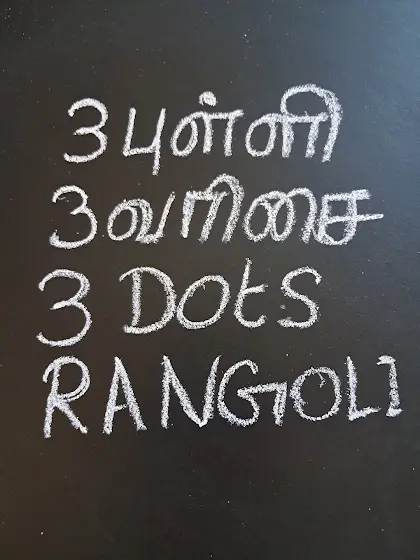 3 புள்ளி
3 வரிசை
3 DOtS
RANGOLI